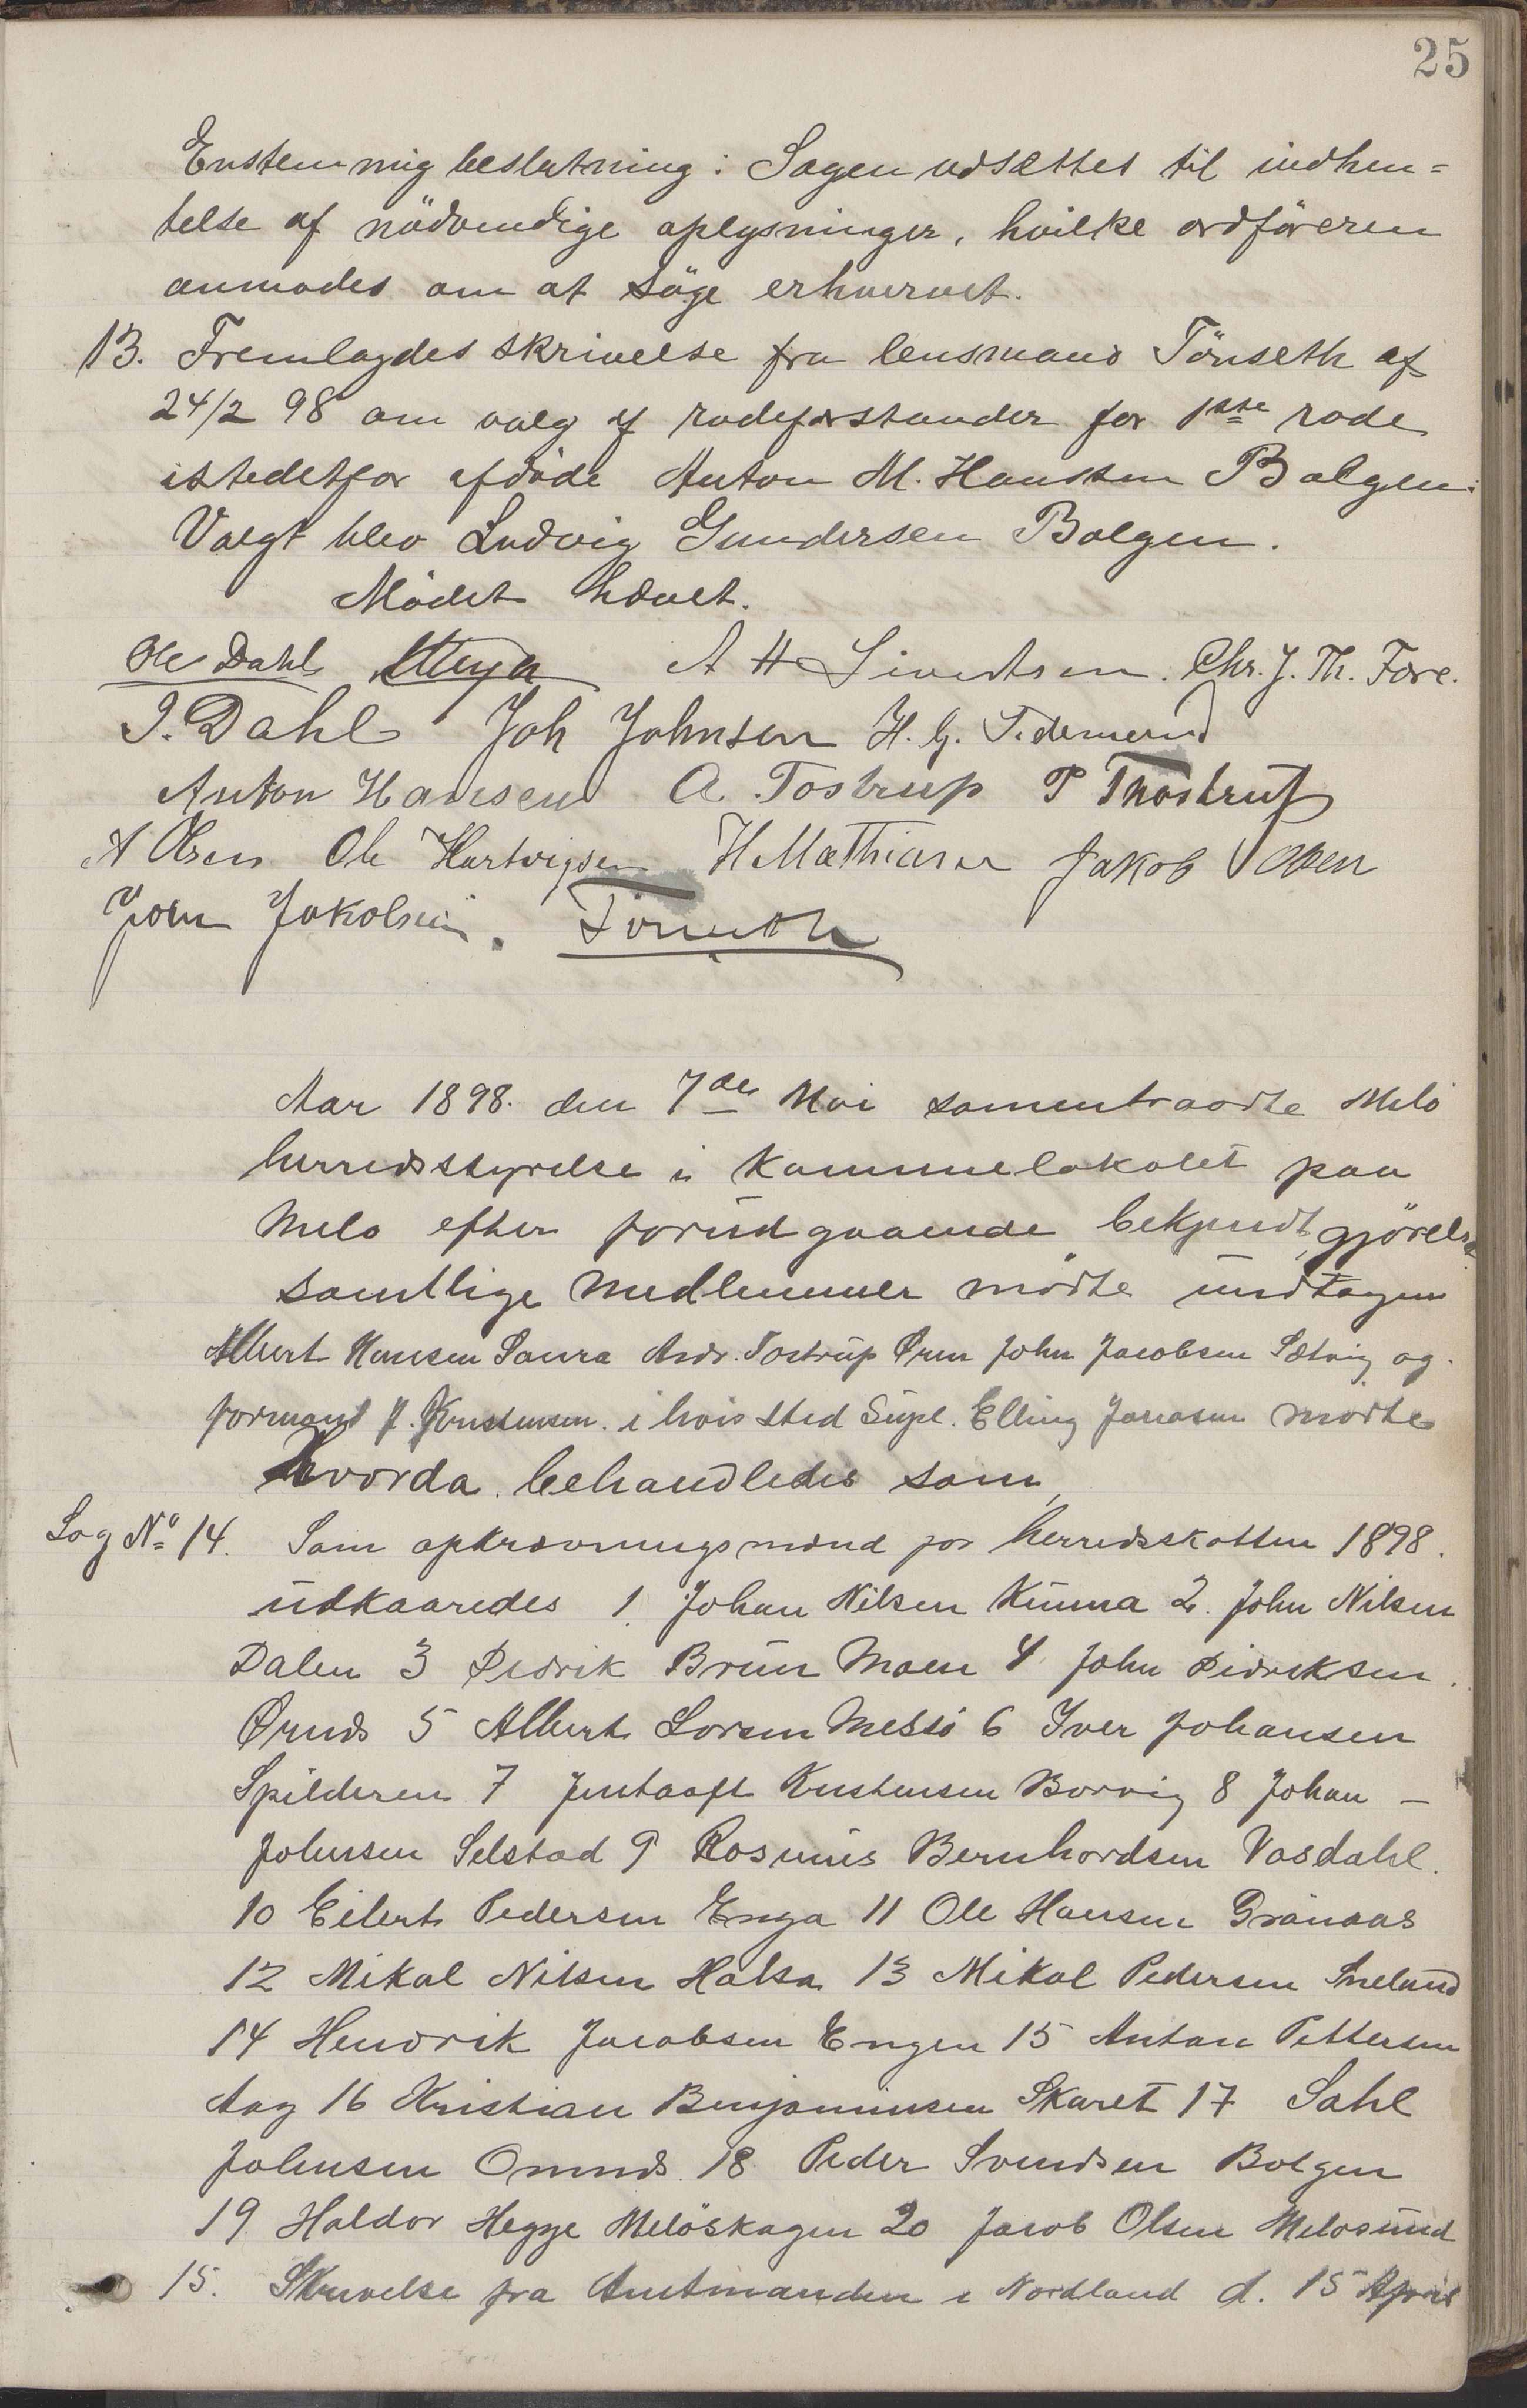 25
Enstemmig beslutning: Sagen udsættes til indhen=
telse af nödvendige oplysninger, hvilke ordföreren
anmodes om at söge erhvervet.
13. Fremlagdes skrivelse fra lensmand Tönseth af
24/2 98 om valg af rodeforstander for 1ste rode
istedetfor afdöde Anton M. Hanssen Bolgen.
Valgt blev Ludvig Gundersen Bolgen.
Mödet hævet.
Ole Dahl A H Sivertsen. Chr. J. Th. Fore.
I. Dahl Joh Johnsen H. G. Tidemand
Anton Hansen A. Tostrup P Thostrup
A Olsen Ole Hartvigsen H Mathiasen Jakob Olsen
John Jakobsen. Tönseth
Aar 1898. den 7de Mai sammentraadte Melö
herredsstyrelse i Kommunelokalet paa
Melö efter forudgaaende bekjendtgjörelse
samtlige medlemmer mödte undtagen
Albert Hansen Saura Andr. Tostrup Ørnes John Jacobsen Sætvig og
formand P. Kristensen. i hvis sted Supl. Elling Jonassen mødte
Hvorda behandledes som
Sag No 14. Som opkrævningsmænd for herredsskatten 1898.
udkaaredes 1. Johan Nilsen Kunna 2. John Nilsen
Dalen 3 Didrik Brun Moen 4 John Didriksen.
Ørnes 5 Albert Larsen Messö 6 Iver Johansen
Spilderen 7 Jentooft Kristensen Borvig 8 Johan –
Johnsen Selstad 9 Rasmus Bernhardsen Vasdahl.
10 Eilert Pedersen Enga 11 Ole Hansen Grönaas
12 Mikal Nilsen Halsa 13 Mikal Pedersen Sneland
14 Hendrik Jacobsen Engen 15 Anton Pettersen
Aag 16 Kristian Benjaminsen Skaret 17 Sahl
Johnsen Omnes 18 Peder Svendsen Bolgen
19 Haldor Hegge Melöskagen 20 Jacob Olsen Melosund
15. Skrivelse fra Amtmanden i Nordland d. 15 April